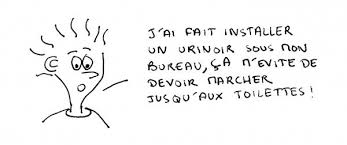 J'AI FAIT INSTALLER
UN URINOIR SOUS MON
BUREAU, ÇA M'EVITE DE
DEVOIR MARCHER
JUSQU'AUX TOILETTES !